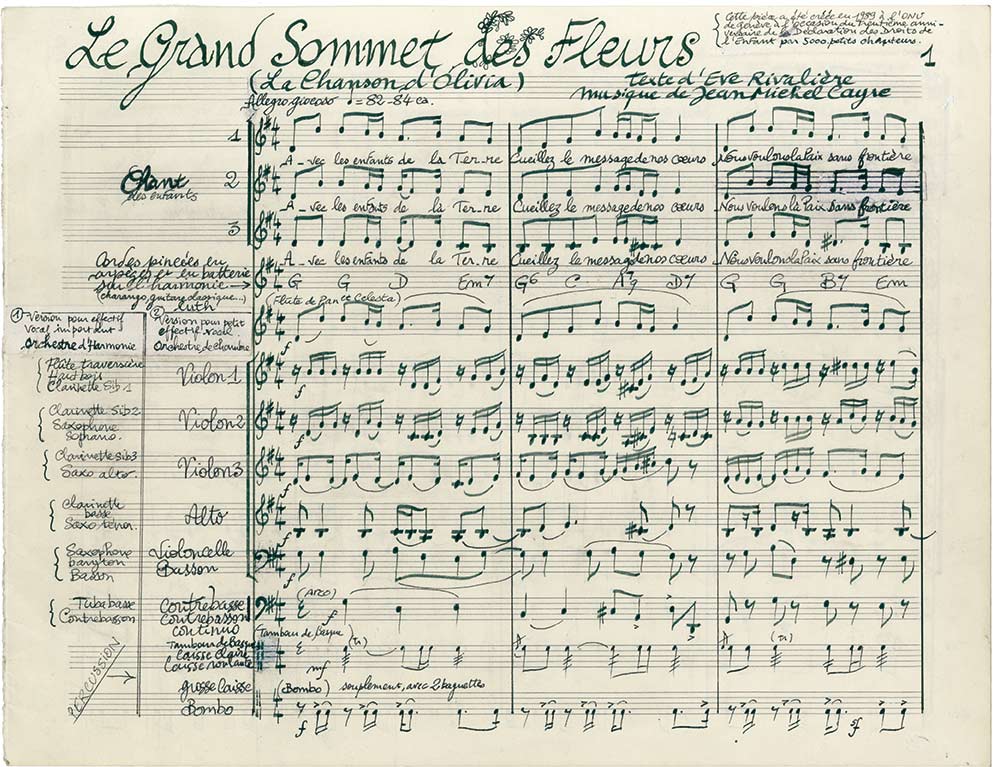 Le Grand Sommet des Fleurs
(La Chanson d'Olivia)
Cette pièce a été créée en 1989 à l'ONU
de Genève à l'occasion du Trentième anni-
versaire de la Déclaration des Droits de
l'Enfant par 5000 petits chanteurs.
1
Texte d'Eve Rivalière
musique de Jean Michel Cayre
Allegro giocoso ♩=82-84 ca.
Chant
des enfants
1
A_vec les enfants de la Ter_re Cueillez le message de nos cœurs Nous voulons la Paix sans frontière
2
A_vec les enfts de la Ter_re Cueillez le message de nos cœurs Nous voulons la Paix sans frontière
3
A_vec les enfants de la Ter_re Cueillez le message de nos cœurs Nous voulons la Paix sans frontière
Cordes pincées en
arpèges et en batterie
sur l'harmonie →
(charango, guitare classique...)
luth
G G D Em7 G6 C A7 D7 G G B7 Em
(Flûte de Pan et Celesta)
f
① Version pour effectif
vocal important
Orchestre d'Harmonie
② Version pour petit
effectif vocal
Orchestre de chambre
Flûte traversière
Hautbois
Clarinette Sib1
Violon 1
f
Clarinette Sib2
Saxophone
Soprano.
Violon 2
f
Clarinette Sib3
Saxo alto.
Violon 3
f
Clarinette
basse
Saxo ténor.
Alto
f
Saxophone
baryton
Basson
Violoncelle
Basson
f
Tuba basse
Contrebasson
Contrebasse
Contrebasson
continuo
(Arco)
f
PERCUSSION →
Tambour de basque
Caisse claire
Caisse roulante
Tambour de basque (tr) (tr)
mf
grosse caisse
Bombo
(Bombo) souplement, avec 2 baguettes
f sf